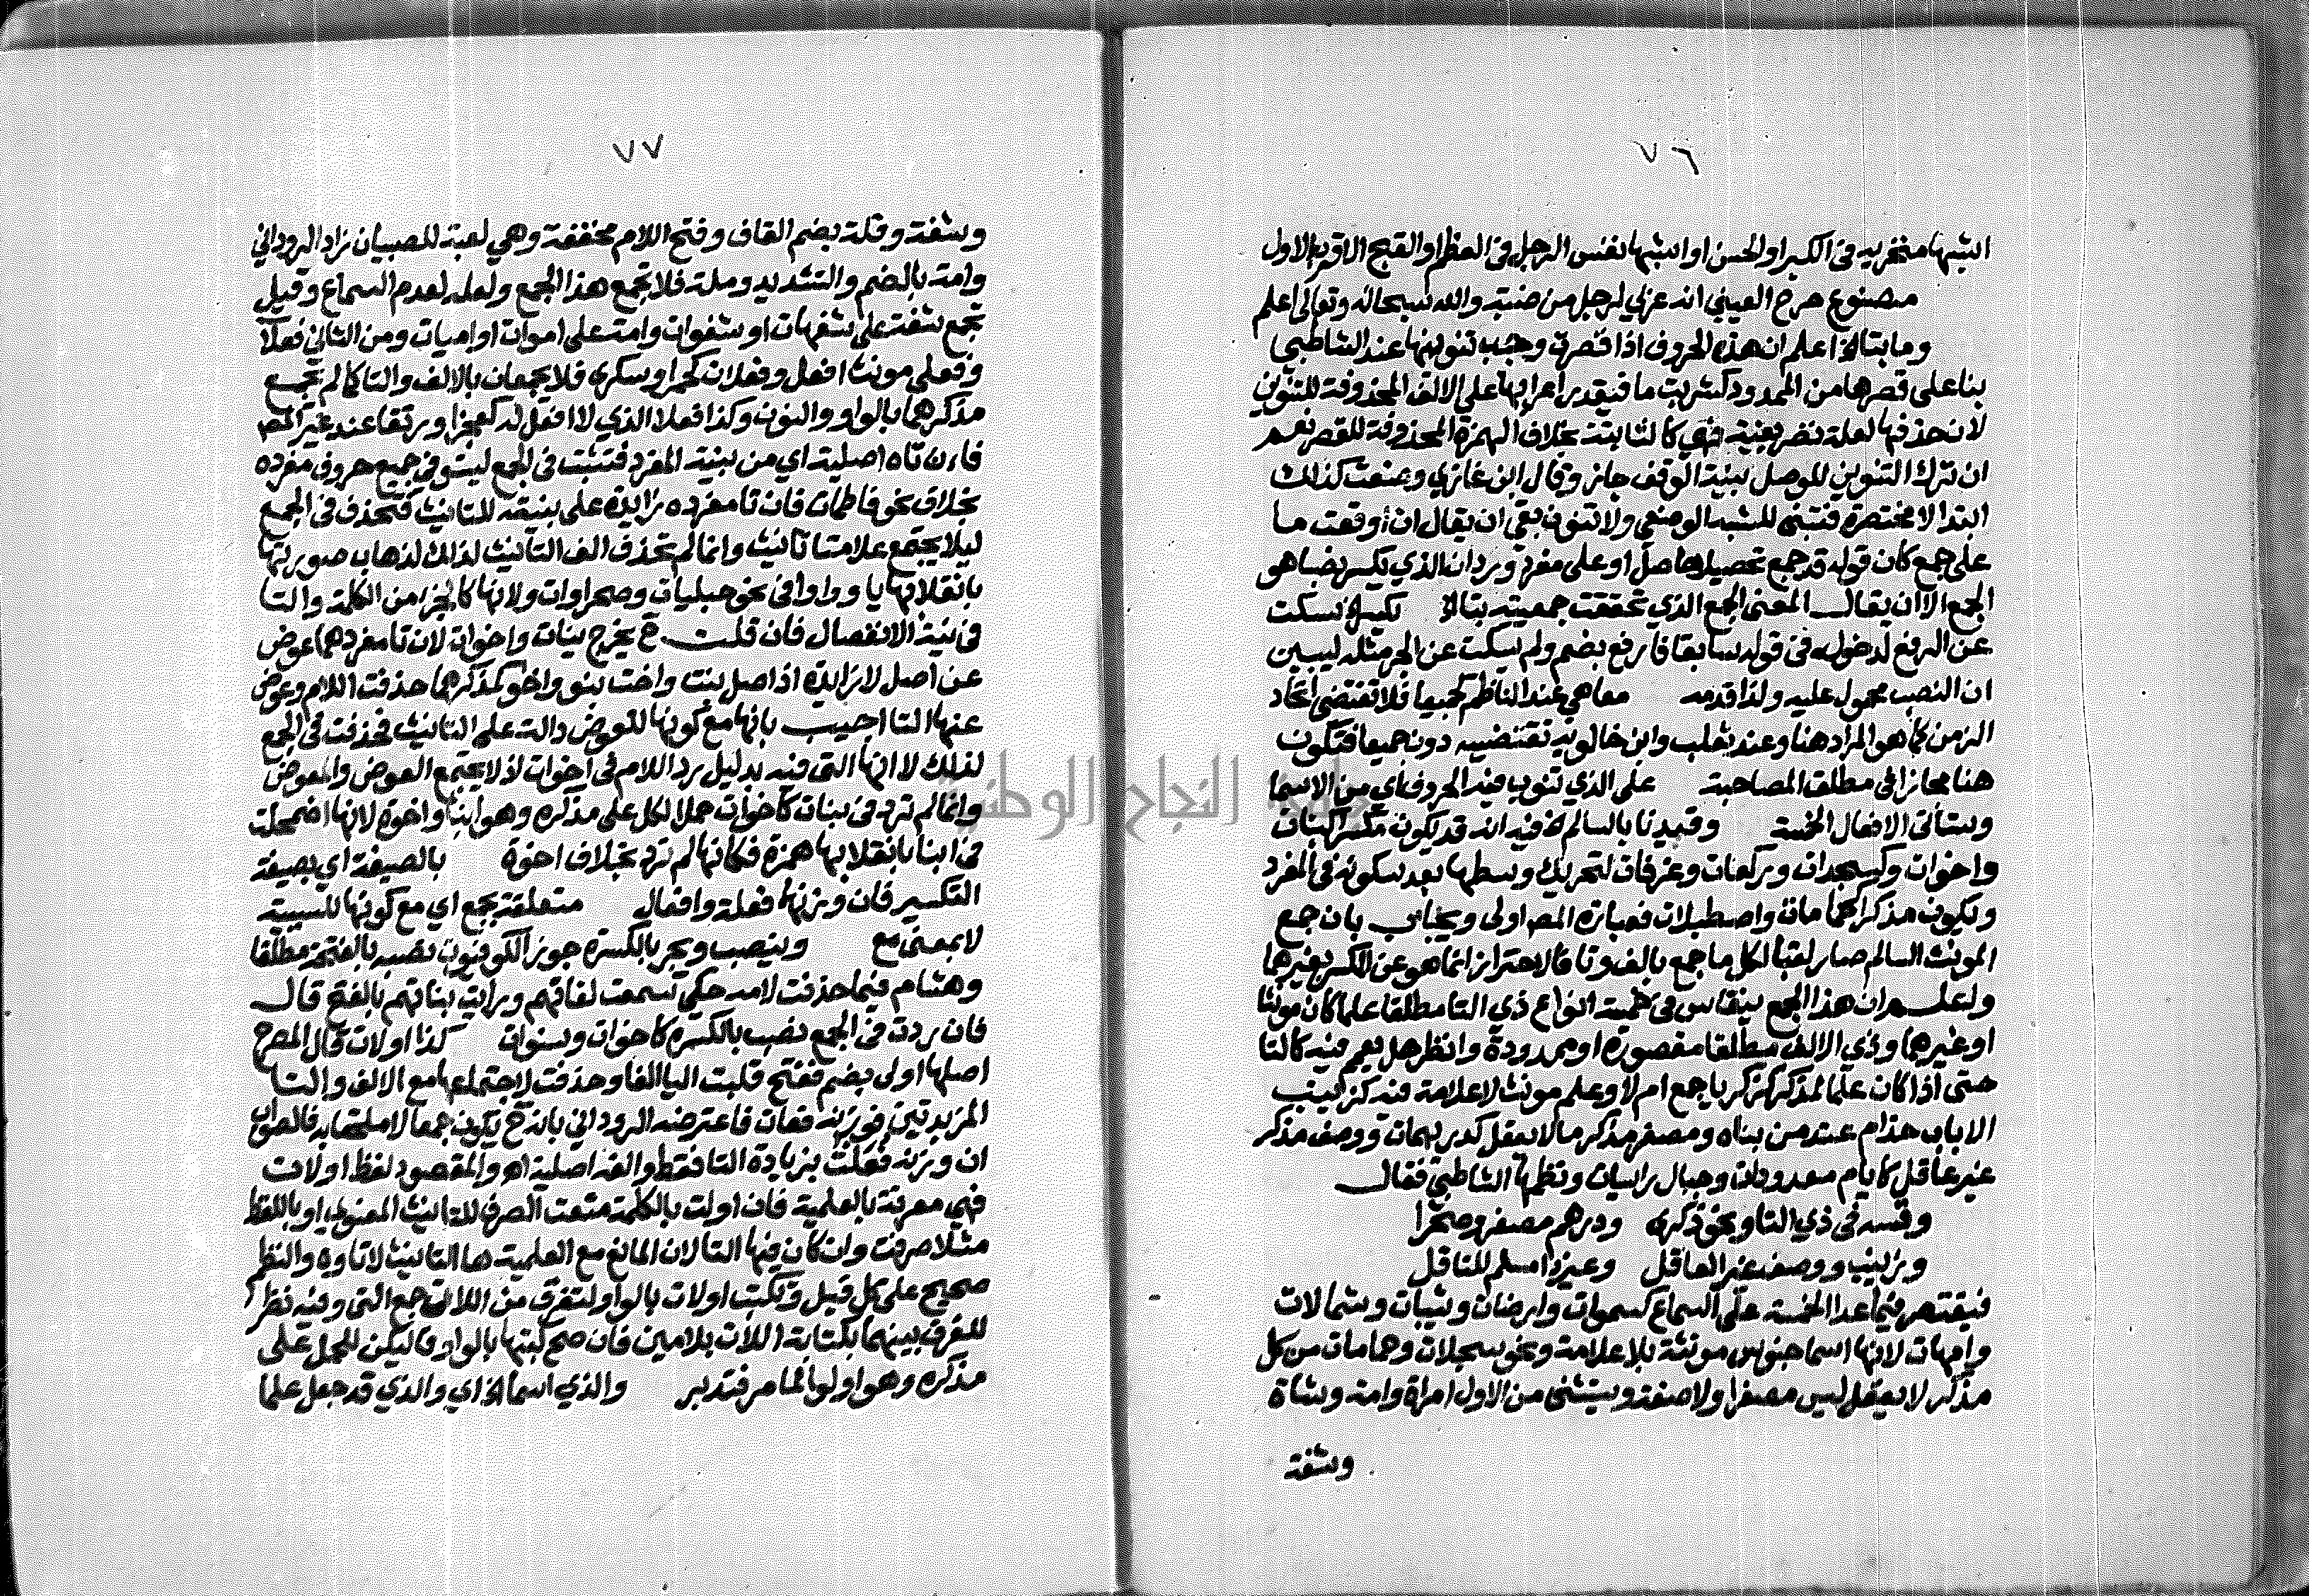 ٧٦
اشبها منخريه فى الكبر او الحسن او اشبها نفس الرجل فى العظم او القبح الاقرب الاول
مصنوع صرح العيني انه عزي لرجل من ضبة والله سبحانه وتعالى اعلم
وما بتا الخ اعلم ان هذه الحروف اذا قصرت وجب تنوينها عند الشاطبي
بنا على قصرها من الممدود كشربت ما فيقدر اعرابها على الالف المحذوفة للتنوين
لان حذفها لعلة تصريفية فهي كالثابتة بخلاف الهمزة المحذوفة للقصر نعم
ان ترك التنوين للوصل بنية الوقف جاز وقال ابن غازي وضعت كذلك
ابتدا لا مختصرة فتبنى للشبه الوضعي ولا تنون بقي ان يقال ان اوقعت ما
على جمع كان قوله قد جمع تحصيل حاصل او على مفرد ورد ان الذي يكسر نصبا هو
الجمع الا ان يقال المعنى الجمع الذي تحققت جمعيته بتا الخ يكسر الخ سكت
عن الرفع لدخوله فى قوله سابقا فارفع بضم ولم يسكت عن الجر مثله ليبين
ان النصب محمول عليه ولذا قدمه معا هي عند الناظم كجميعا فلا تقتضي اتحاد
الزمن كما هو المراد هنا وعند ثعلب وابن خالويه تقتضيه دون جميعا فتكون
هنا مجازا فى مطلق المصاحبة على الذي تنوب فيه الحروف اي من الاسما
وستأتى الافعال الخمسة وقيدنا بالسالم الخ فيه انه قد يكون مكسرا كبنات
واخوات وكسجدات وركعات وغرفات لتحريك وسطها بعد سكونه فى المفرد
ويكون مذكرا كحمامات واصطبلات فعبارة المص اولى ويجاب بان جمع
المونث السالم صار لقبا لكل ما جمع بالف وتا فالاحتراز انما هو عن المكسر بغيرهما
ولعلم ان هذا الجمع ينقاس فى خمسة انواع ذي التا مطلقا علما كان مونثا
او غيرهما وذي الالف مطلقا مقصورة او ممدودة وانظر هل يعم فيه كالتا
حتى اذا كان علما لمذكر كزكريا جمع ام لا وعلم مونث لا علامة فيه كزينب
الا باب حذام عند من بناه ومصغر مذكر ما لا يعقل كدريهمات ووصف مذكر
غير عاقل كايام معدودات وجبال راسيات ونظمها الشاطبي فقال
وقسه فى ذي التا ونحو ذكرى ودرهم مصغر وصحرا
وزينب ووصف غير العاقل وغير ذا مسلم للناقل
فيقتصر فيما عدا الخمسة على السماع كسموات وارضات وثيبات وشمالات
وامهات لانها اسما جنوس مونثة بلا علامة ونحو سجلات وحمامات من كل
مذكر لا يعقل ليس مصغرا ولا صفة ويستثنى من الاول امراة وامة وشاة
وشفة
٧٧
وشفة وقلة بضم القاف وفتح اللام مخففة وهي لعبة للصبيان زاد الروداني
وامة بالضم والتشديد وملة فلا تجمع هذا الجمع ولعله لعدم السماع وقيل
تجمع شفة على شفهات او شفوات وامة على اموات او اميات ومن الثاني فعلا
وفعلى مونث افعل وفعلان كحمرا وسكرى فلا يجمعان بالالف والتا كما لم يجمع
مذكرهما بالواو والنون وكذا فعلا الذي لا افعل له كعجزا ورتقا عند غير المص
فان تاه اصلية اي من بنية المفرد فتثبت فى الجمع ليستوفى جميع حروف مفرده
بخلاف نحو فاطمات فان تا مفرده زايدة على بنيته للتانيث فتحذف فى الجمع
ليلا يجتمع علامتا تانيث وانما لم تحذف الف التانيث لذلك لذهاب صورتها
بانقلابها يا وواوا فى نحو حبليات وصحراوات ولانها كالجزء من الكلمة والتا
فى نية الانفصال فان قلت ح يخرج بنات واخوات لان تا مفردهما عوض
عن اصل لا زايدة اذ اصل بنت واخت بنو واخو كمذكرهما حذفت اللام وعوض
عنها التا اجيب بانها مع كونها للعوض دالة على التانيث فحذفت فى الجمع
لذلك لا انها التى فيه بدليل رد اللام فى اخوات اذ لا يجتمع العوض والمعوض
وانما لم ترد فى بنات كاخوات حملا لكل على مذكره وهو ابنا واخوة لانها اضمحلت
فى ابنا بانقلابها همزة فكانها لم ترد بخلاف اخوة بالصيغة اي بصيغة
التكسير فان وزنها فعلة وافعال متعلقة بجمع اي مع كونها للسببية
لا بمعنى مع وينصب ويجر بالكسرة جوز الكوفيون نصبه بالفتحة مطلقا
وهشام فيما حذفت لامه حكي سمعت لغاتهم ورايت بناتهم بالفتح قال
فان ردت فى الجمع نصب بالكسرة كاخوات وسنوات كذا اولات قال المصرح
اصلها اولى بضم ففتح قلبت اليا الفا وحذفت لاجتماعها مع الالف والتا
المزيدتين فوزنه فعات فاعترضه الروداني بانه ح يكون جمعا لا ملحقا به فالصواب
ان وزنه فعلت بزيادة التا فقط والفه اصلية اهـ والمقصود لفظ اولات
فهي معرفة بالعلمية فان اولت بالكلمة منعت الصرف للتانيث المعنوي او باللفظ
مثلا صرفت وان كان فيها التا لان المانع مع العلمية ها التانيث لا تاوه والنظم
صحيح على كل قيل وتكتب اولات بالواو لتفرق من اللات جمع التى وفيه نظر
للفرق بينهما بكتابة اللات بلامين فان صح كتبها بالواو فليكن للحمل على
مذكره وهو اولوا لما مر فتدبر والذي اسما الخ اي والذي قد جعل علما
جامعة النجاح الوطنية